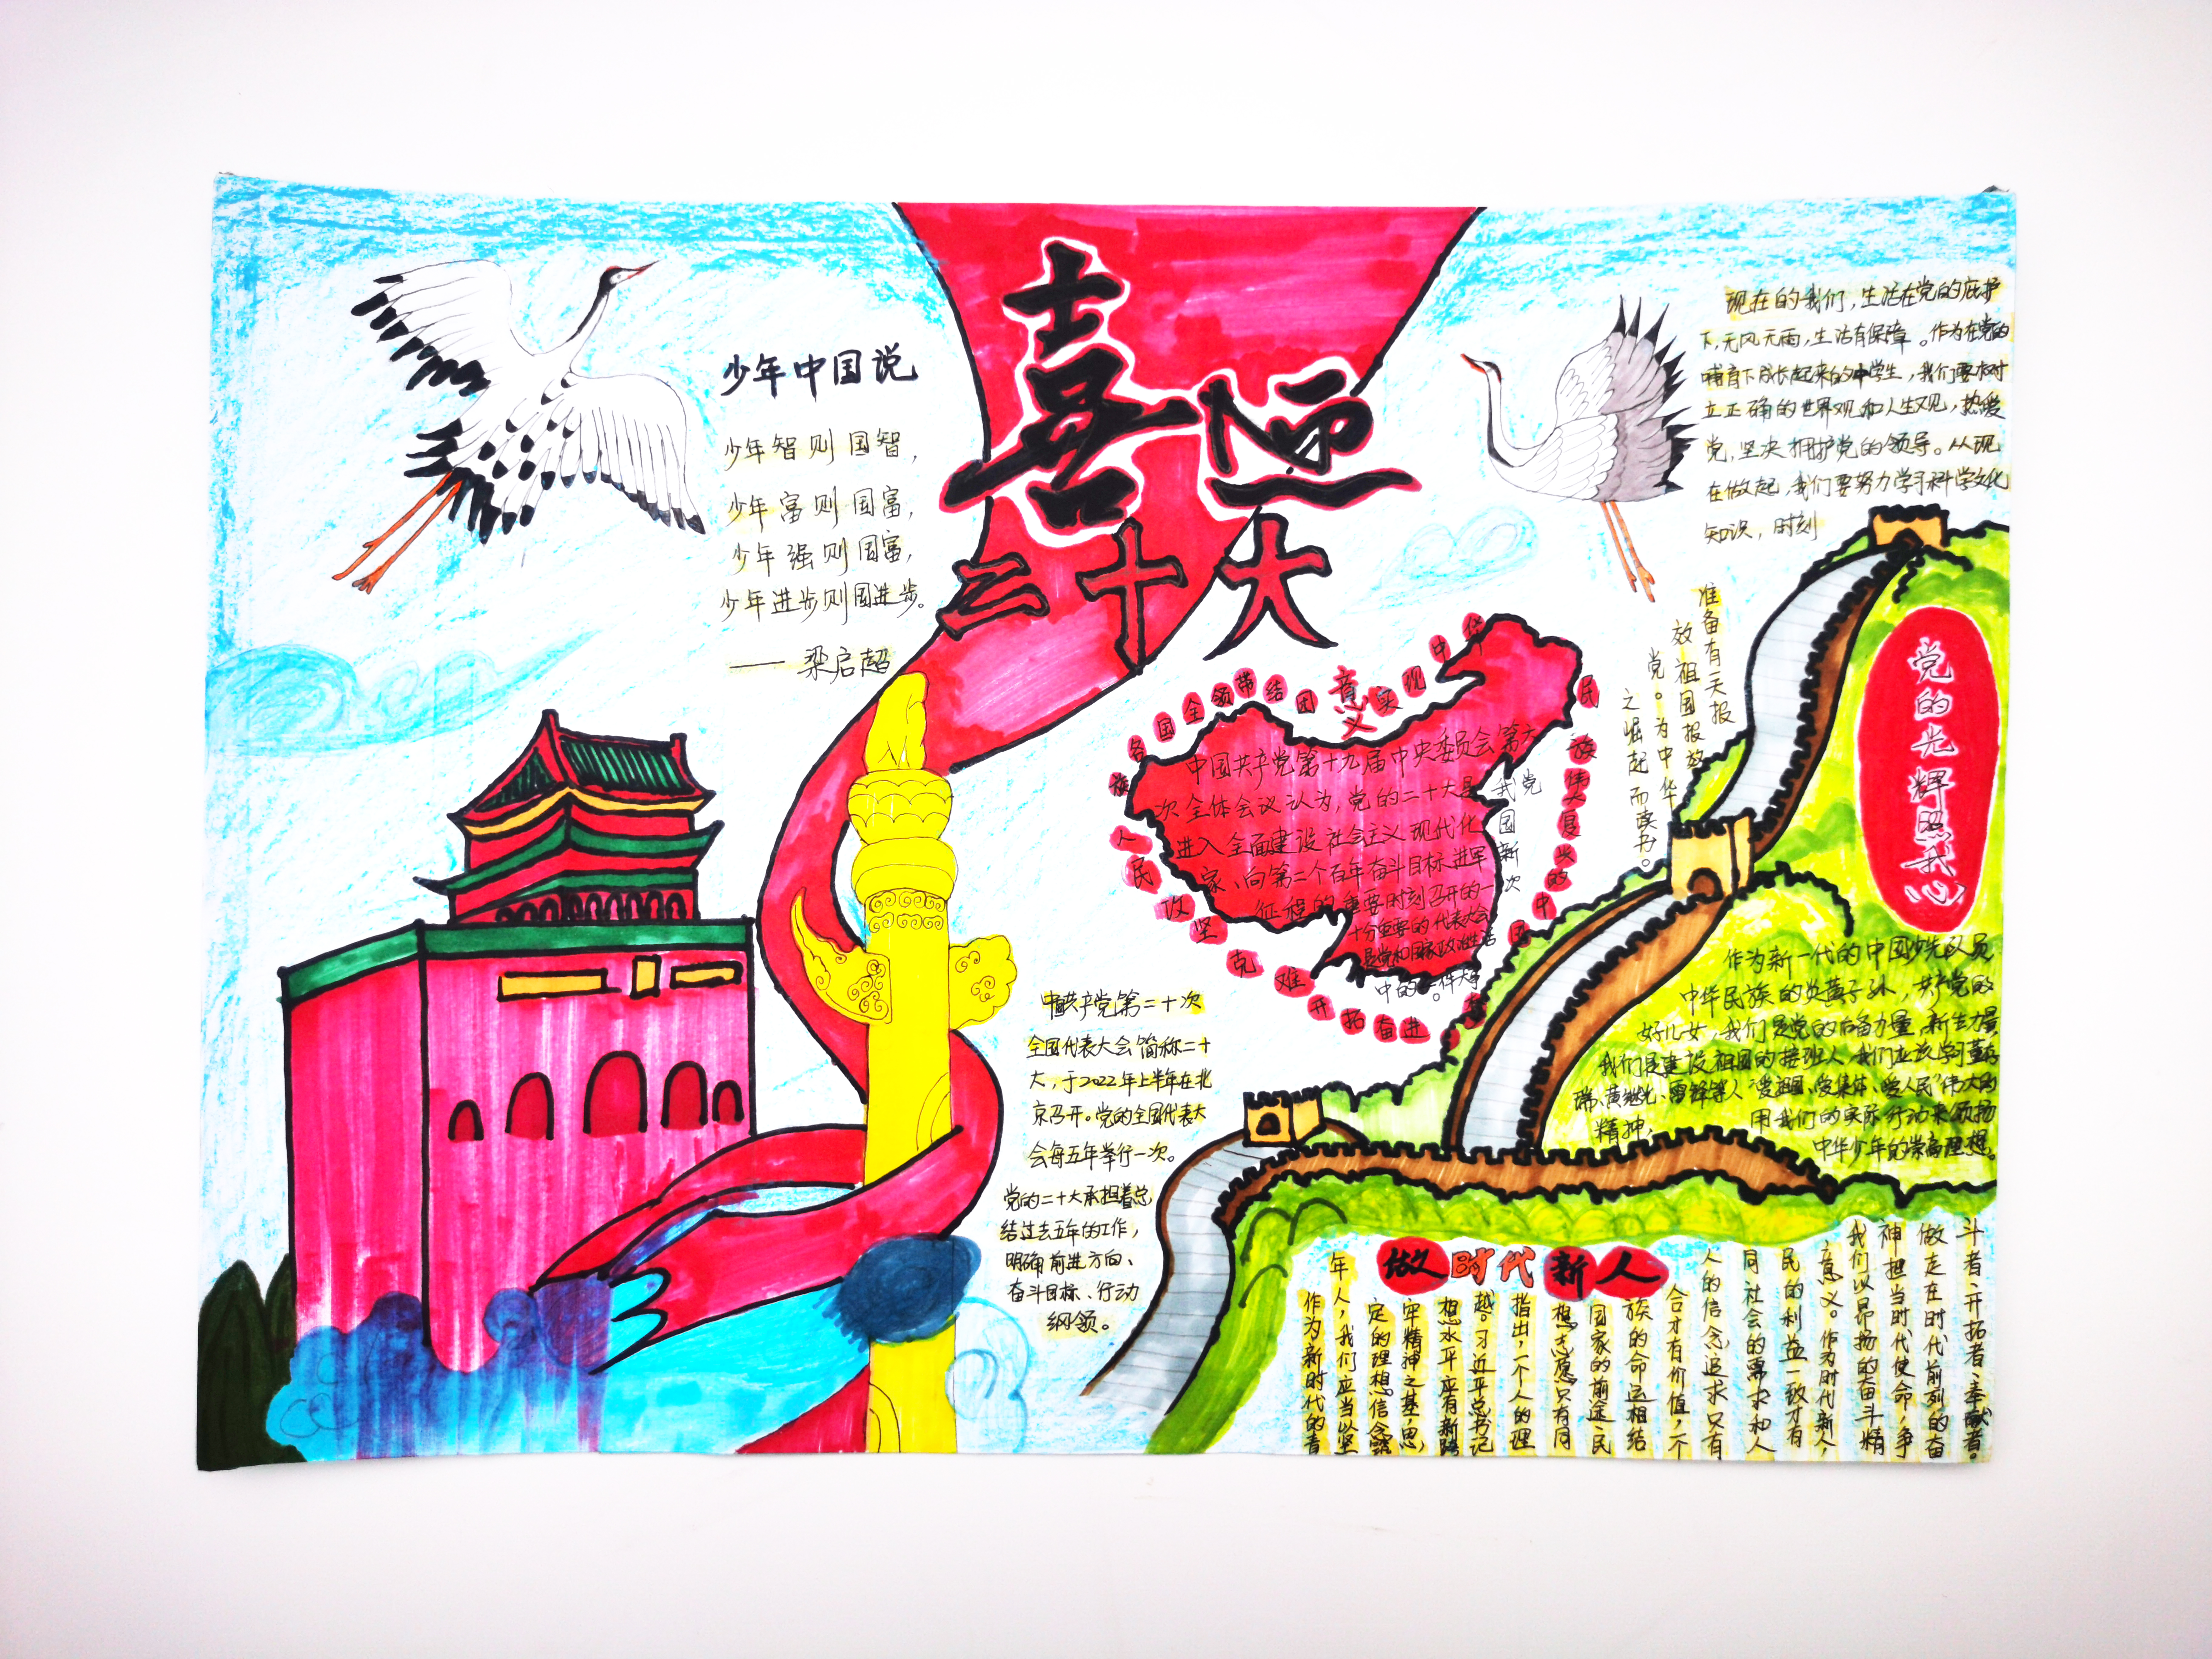 喜迎
二十大
少年中国说
少年智则国智，
少年富则国富，
少年强则国富，
少年进步则国进步。
—— 梁启超
现在的我们，生活在党的庇护
下，无风无雨，生活有保障。作为在党的
哺育下成长起来的中学生，我们要树
立正确的世界观和人生观，热爱
党，坚决拥护党的领导。从现
在做起，我们要努力学习科学文化
知识，时刻
准备有一天报
效祖国报效
党。为中华
之崛起而读书。
意义
全国各族人民攻坚克难开拓奋进
团结带领
实现中华民族伟大复兴的中国
中国共产党第十九届中央委员会第六
次全体会议认为，党的二十大是我党
进入全面建设社会主义现代化国
家、向第二个百年奋斗目标进军新
征程的重要时刻召开的一次
十分重要的代表大会
是党和国家政治生活
中的一件大事。
中国共产党第二十次
全国代表大会简称二十
大，于2022年上半年在北
京召开。党的全国代表大
会每五年举行一次。
党的二十大承担着总
结过去五年的工作，
明确前进方向、
奋斗目标、行动
纲领。
党的光辉照我心
作为新一代的中国少先队员
中华民族的炎黄子孙，共产党的
好儿女，我们是党的后备力量，新生力量
我们是建设祖国的接班人，我们应该学习董存
瑞、黄继光、雷锋等人“爱祖国、爱集体、爱人民”伟大的
精神，
用我们的实际行动来颂扬
中华少年的崇高理想。
做时代新人
作为新时代的青
年人，我们应当以坚
定的理想信念筑
牢精神之基，思
想水平应有新跨
越。习近平总书记
指出，一个人的理
想志愿只有同
国家的前途、民
族的命运相结
合才有价值，一个
人的信念追求只有
同社会的需求和人
民的利益一致才有
意义。作为时代新人，
我们以昂扬的奋斗精
神担当时代使命，争
做走在时代前列的奋
斗者、开拓者、奉献者。